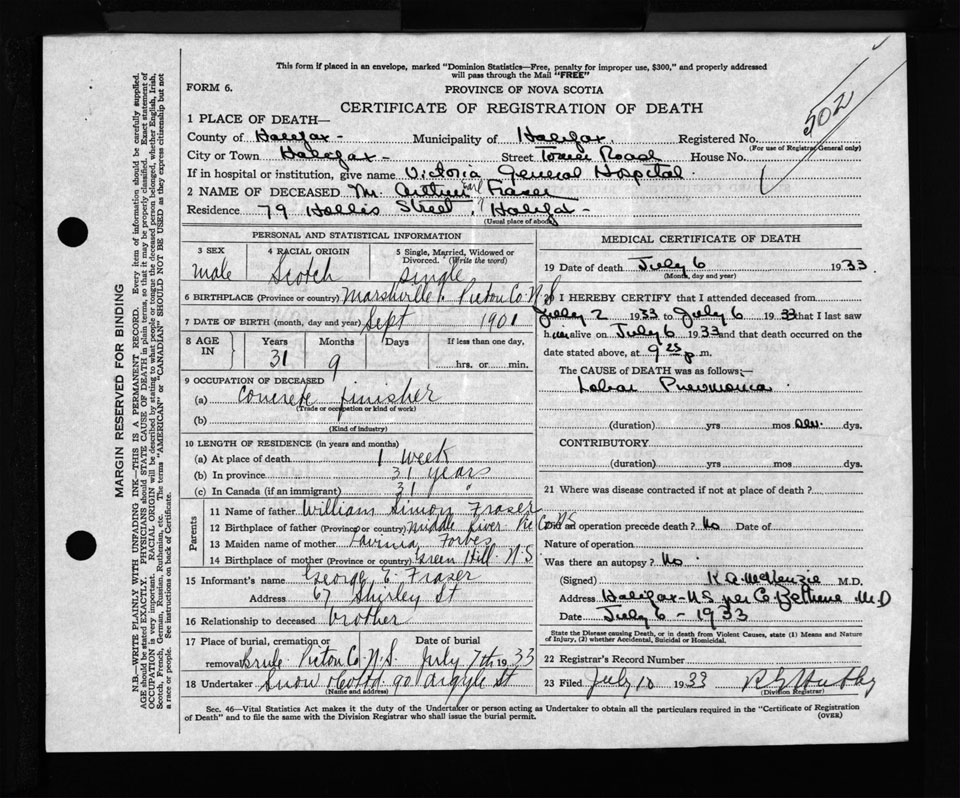 This form if placed in an envelope, marked "Dominion Statistics—Free, penalty for improper use, $300," and properly addressed
will pass through the Mail "FREE"
FORM 6.
PROVINCE OF NOVA SCOTIA
502
CERTIFICATE OF REGISTRATION OF DEATH
1 PLACE OF DEATH—
County of Halifax - Municipality of Halifax Registered No.
(For use of Registrar General only)
City or Town Halifax - Street Tower Road House No.
If in hospital or institution, give name Victoria General Hospital.
2 NAME OF DECEASED Mr. Arthur Earl Fraser
Residence 79 Hollis Street, Halifax -
(Usual place of abode)
PERSONAL AND STATISTICAL INFORMATION
3 SEX 4 RACIAL ORIGIN 5 Single, Married, Widowed or Divorced. (Write the word)
male Scotch single
6 BIRTHPLACE (Province or country) Marshville, Pictou Co. N.S
7 DATE OF BIRTH (month, day and year) Sept 1901
8 AGE IN Years Months Days If less than one day,
31 9 hrs. or min.
9 OCCUPATION OF DECEASED
(a) Concrete finisher
(Trade or occupation or kind of work)
(b)
(Kind of industry)
10 LENGTH OF RESIDENCE (in years and months)
(a) At place of death 1 week
(b) In province 31 years
(c) In Canada (if an immigrant) 31 "
Parents
11 Name of father William Simon Fraser
12 Birthplace of father (Province or country) Middle River Pic Co N.S
13 Maiden name of mother Lavinia Forbes
14 Birthplace of mother (Province or country) Green Hill N.S
15 Informant's name George E. Fraser
Address 67 Shirley St
16 Relationship to deceased brother
17 Place of burial, cremation or removal Date of burial
Brule Pictou Co. N.S. July 7th, 1933
18 Undertaker Snow & Co Ltd 90 Argyle St
(Name and address)
MEDICAL CERTIFICATE OF DEATH
19 Date of death July 6 1933.
(Month, day and year)
20 I HEREBY CERTIFY that I attended deceased from
July 2 1933 to July 6 1933 that I last saw
him alive on July 6 1933 and that death occurred on the
date stated above, at 9 25 p.m.
The CAUSE OF DEATH was as follows:—
Lobar Pneumonia
(duration) yrs mos dys.
CONTRIBUTORY
(duration) yrs mos dys.
21 Where was disease contracted if not at place of death?
Did an operation precede death? No Date of
Nature of operation
Was there an autopsy? No.
(Signed) K A McKenzie M.D.
Address Halifax - N.S. per Bethune M.D
Date July 6 - 1933
State the Disease causing Death, or in death from Violent Causes, state (1) Means and Nature
of Injury, (2) whether Accidental, Suicidal or Homicidal.
22 Registrar's Record Number
23 Filed July 10 1933
(Division Registrar)
Sec. 46—Vital Statistics Act makes it the duty of the Undertaker or person acting as Undertaker to obtain all the particulars required in the "Certificate of Registration
of Death" and to file the same with the Division Registrar who shall issue the burial permit.
(OVER)
MARGIN RESERVED FOR BINDING
N.B.—WRITE PLAINLY WITH UNFADING INK—THIS IS A PERMANENT RECORD. Every item of information should be carefully supplied.
AGE should be stated EXACTLY. PHYSICIANS should STATE CAUSE OF DEATH in plain terms, so that it may be properly classified. Exact statement of
OCCUPATION is very important. RACIAL ORIGIN will be described by stating to what people or tongue the deceased person belonged, whether English, Irish,
Scotch, French, German, Russian, Ruthenian, etc. The terms "AMERICAN" or "CANADIAN" SHOULD NOT BE USED as they express citizenship but not
a race or people. See instructions on back of Certificate.